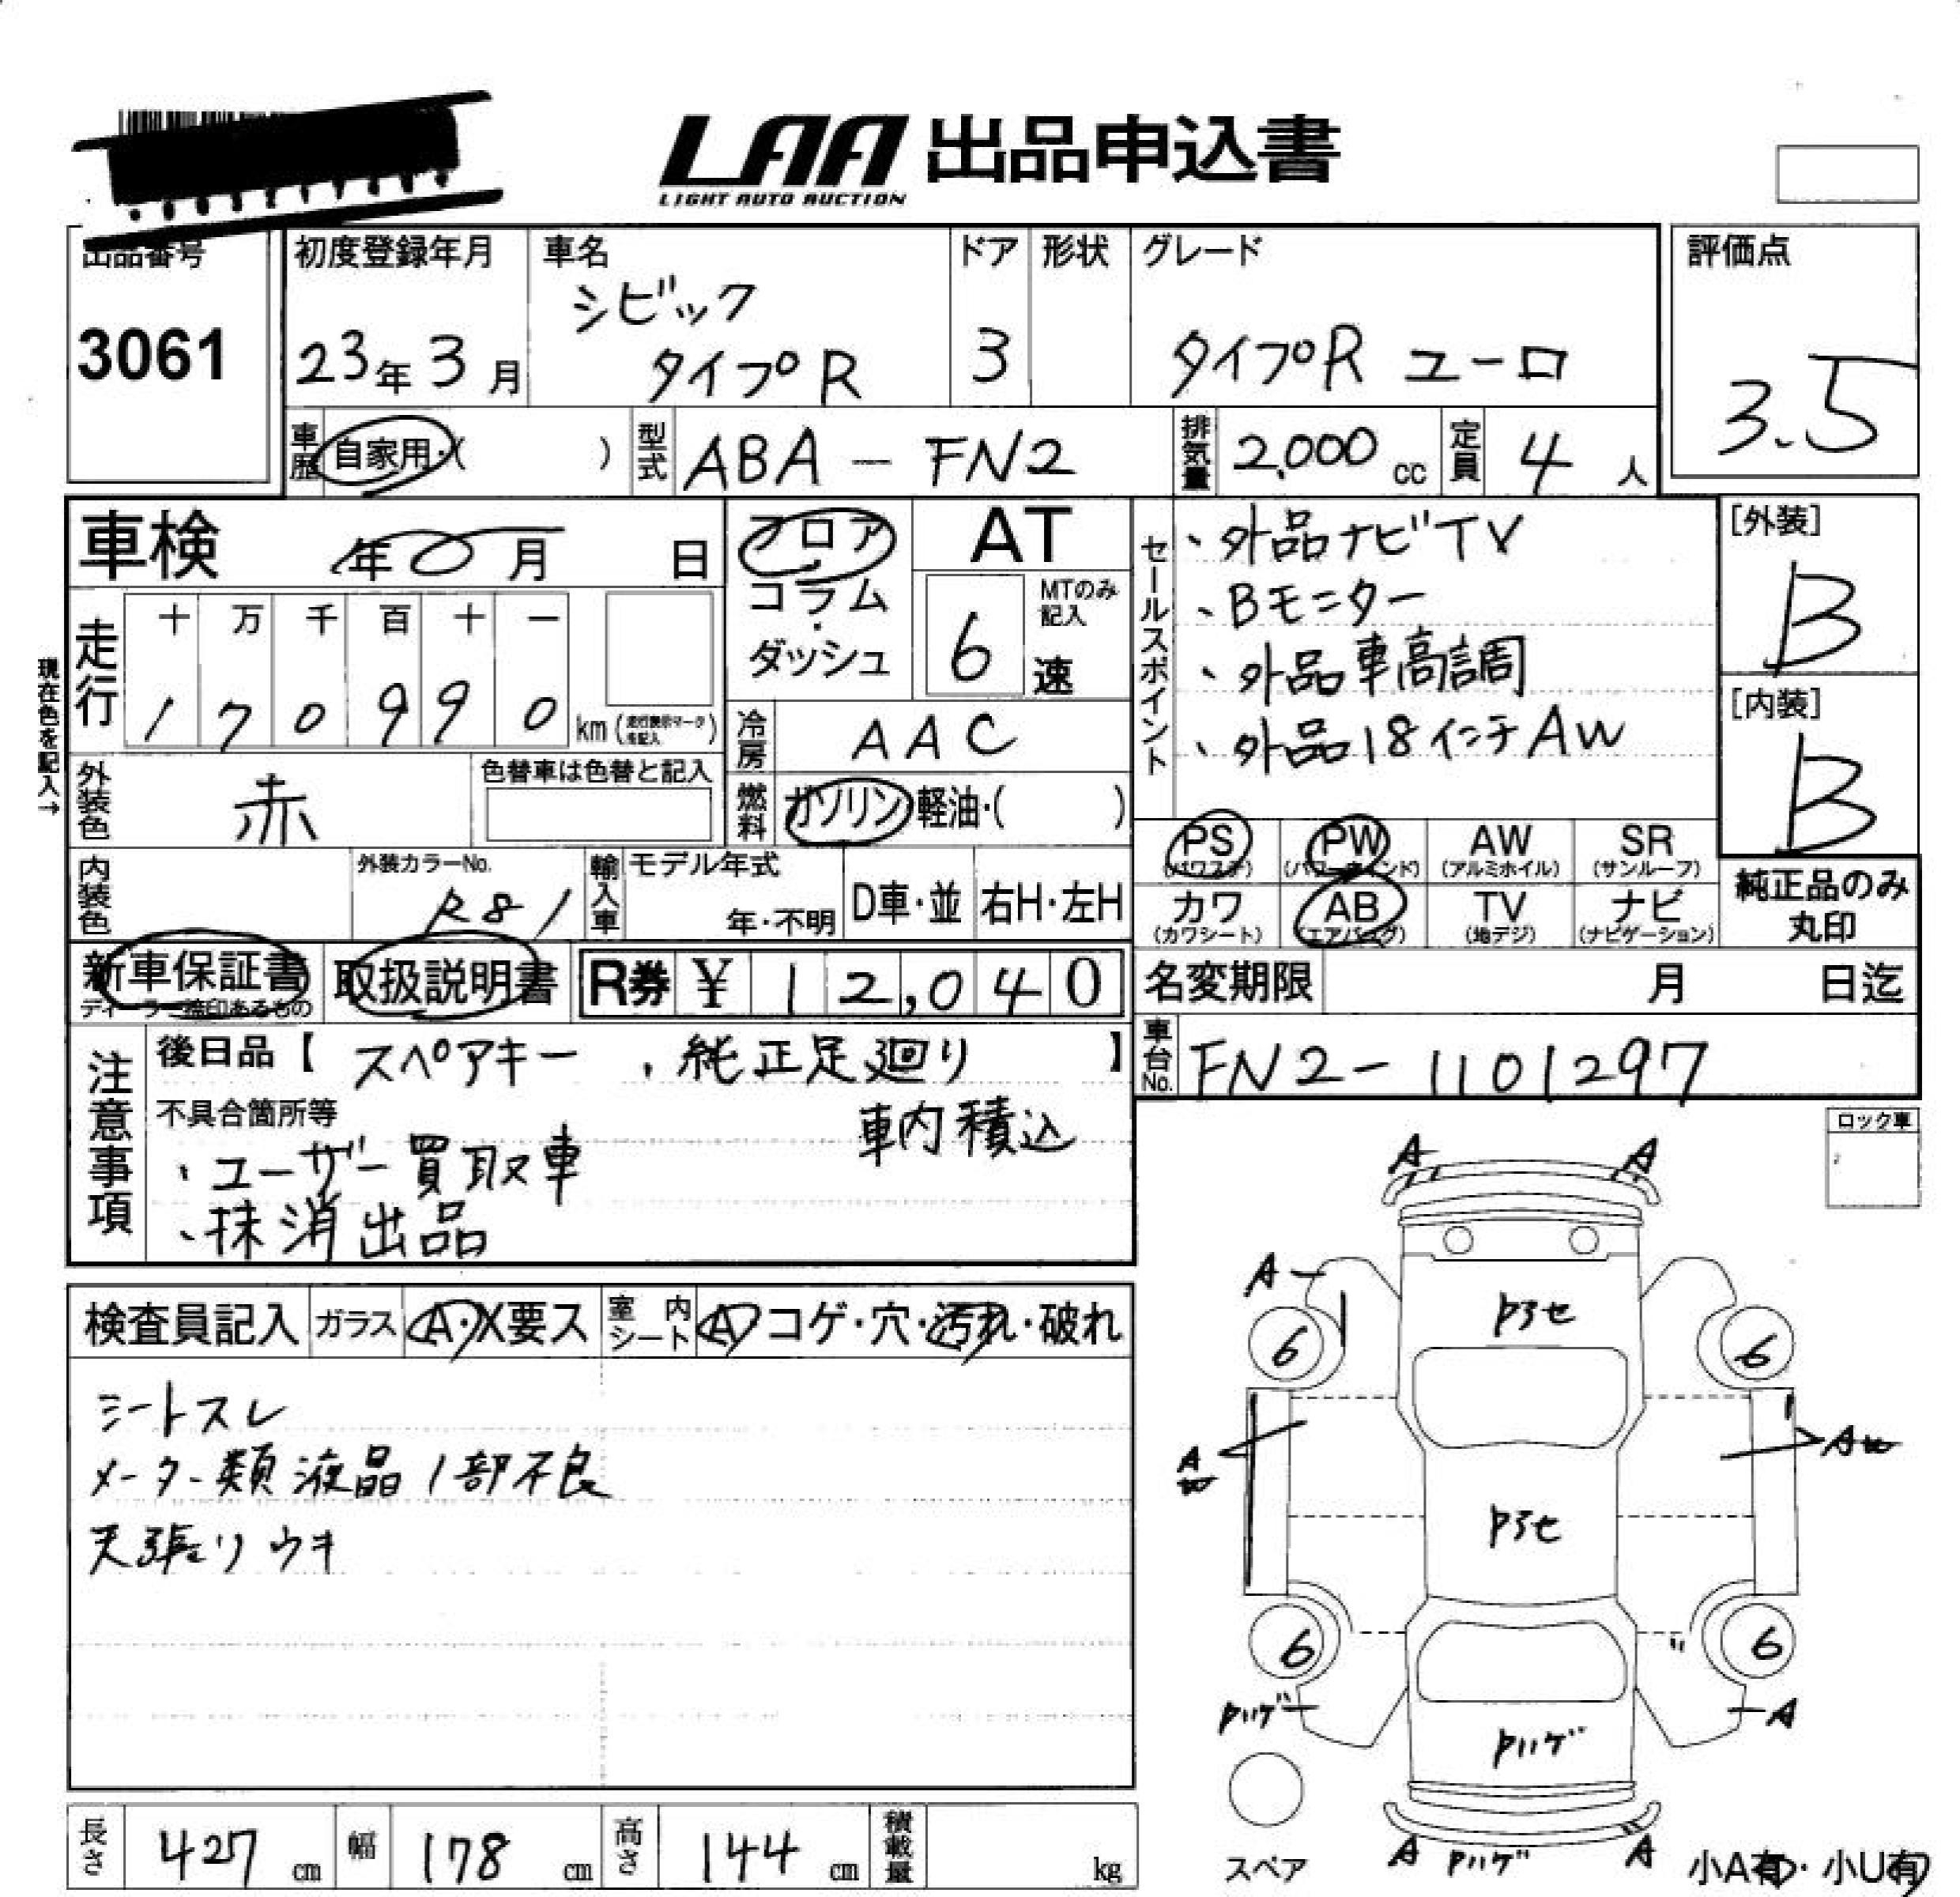 LAA 出品申込書
LIGHT AUTO AUCTION
出品番号 初度登録年月 車名 ドア 形状 グレード 評価点
3061 23年 3月 シビック タイプR 3 タイプR ユーロ 3.5
車歴 自家用・( ) 型式 ABA-FN2 排気量 2,000 cc 定員 4 人
車検 年 月 日 フロア・コラム・ダッシュ AT
6 速 MTのみ記入
現在色を記入→
走行 十 万 千 百 十 一
1 7 0 9 9 0 km (走行表示マークを記入)
冷房 AAC
外装色 赤 色替車は色替と記入
燃料 ガソリン・軽油・( )
内装色 外装カラーNo. R81 輸入車 モデル年式 年・不明 D車・並 右H・左H
セールスポイント
、外品ナビTV
、Bモニター
、外品車高調
、外品18インチAW
[外装] B
[内装] B
PS (パワステ) PW (パワーウィンド) AW (アルミホイル) SR (サンルーフ)
カワ (カワシート) AB (エアバッグ) TV (地デジ) ナビ (ナビゲーション)
純正品のみ丸印
新車保証書 ディーラー捺印あるもの 取扱説明書 R券 ¥ 12,040
名変期限 月 日迄
車台No. FN2-1101297
注意事項
後日品【 スペアキー 、純正足廻り 】
車内積込
不具合箇所等
、ユーザー買取車
、抹消出品
ロック車
検査員記入 ガラス A・X要ス 室内シート A・コゲ・穴・汚れ・破れ
シートスレ
メーター類液晶1部不良
天張りウキ
A A
A
Pアセ
6 6
A
Pアセ
6 6
Pハゲ A
Pハゲ
A Pハゲ A
スペア 小A有・小U有
長さ 427 cm 幅 178 cm 高さ 144 cm 積載量 kg